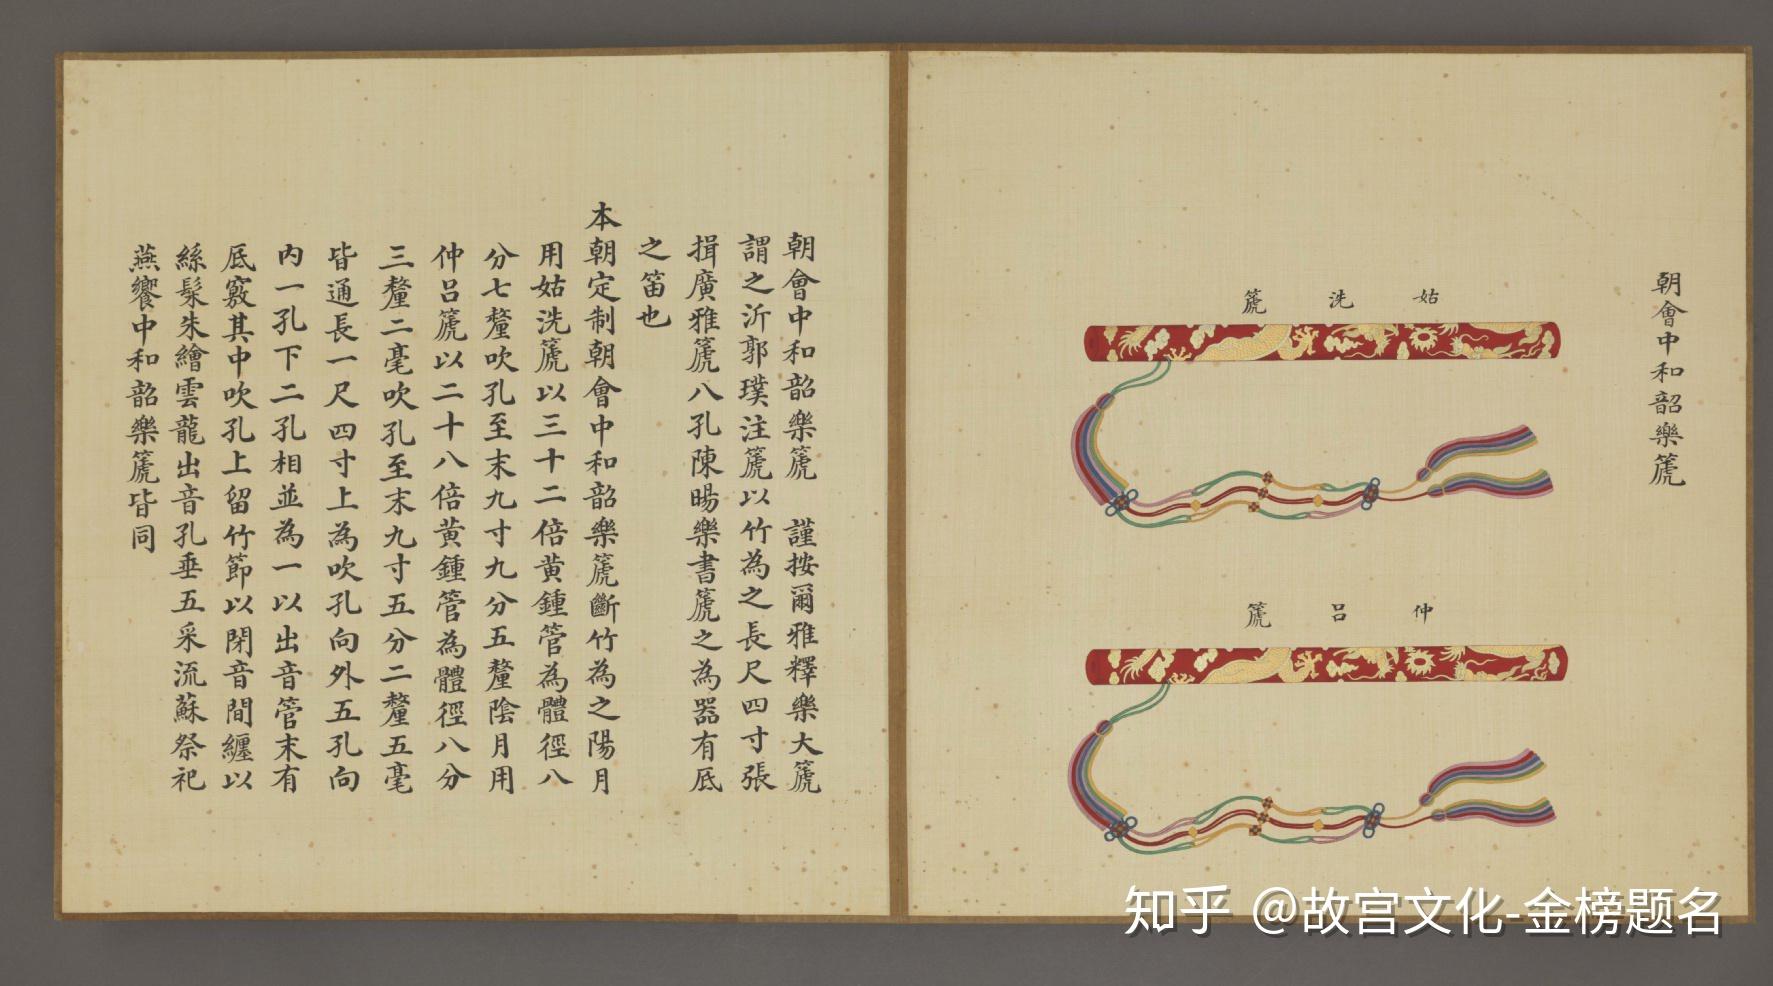 朝會中和韶樂篪
姑洗篪
仲呂篪
朝會中和韶樂篪　謹按爾雅釋樂大篪
謂之沂郭璞注篪以竹為之長尺四寸張
揖廣雅篪八孔陳暘樂書篪之為器有底
之笛也
本朝定制朝會中和韶樂篪斷竹為之陽月
用姑洗篪以三十二倍黃鍾管為體徑八
分七釐吹孔至末九寸九分五釐陰月用
仲呂篪以二十八倍黃鍾管為體徑八分
三釐二毫吹孔至末九寸五分二釐五毫
皆通長一尺四寸上為吹孔向外五孔向
內一孔下二孔相並為一以出音管末有
底竅其中吹孔上留竹節以閉音間纏以
絲髹朱繪雲龍出音孔垂五采流蘇祭祀
燕饗中和韶樂篪皆同
知乎 @故宫文化-金榜题名